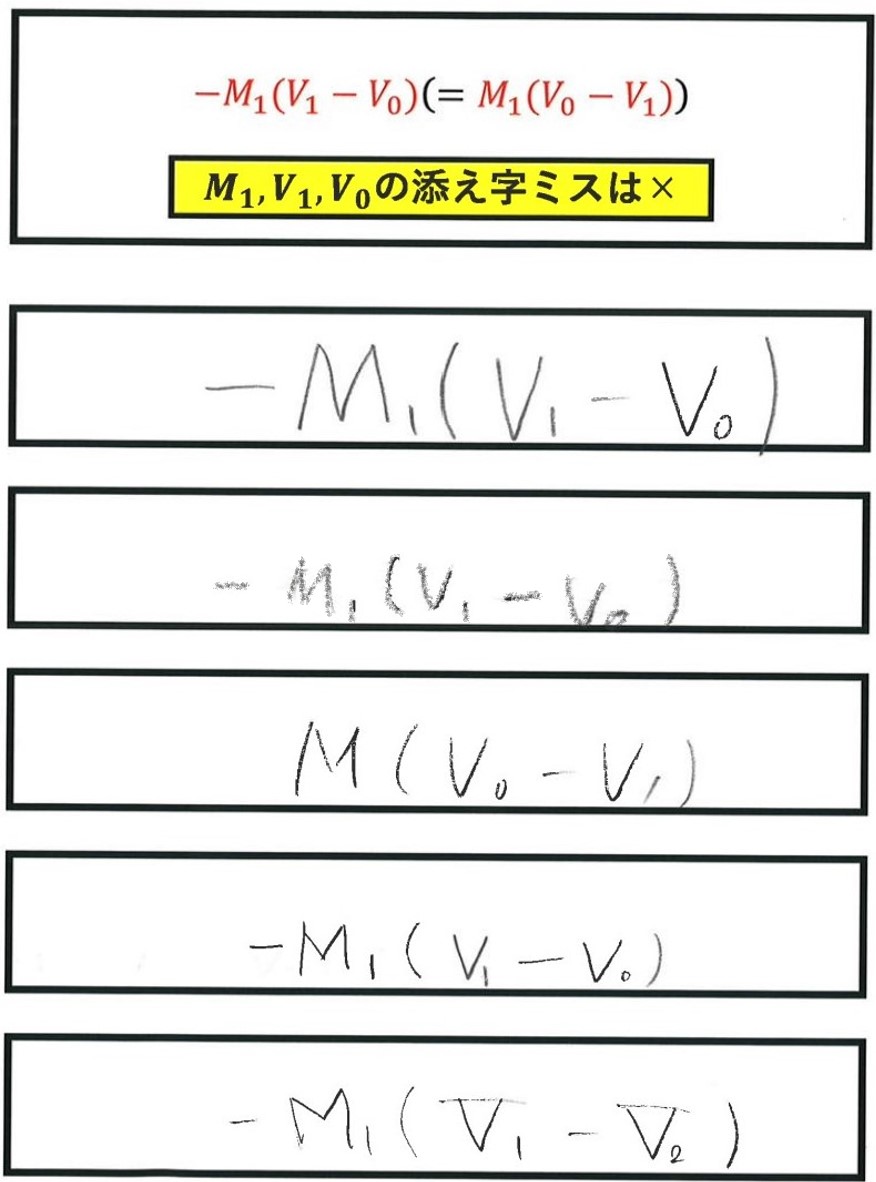 −M₁(V₁ − V₀)(= M₁(V₀ − V₁))
M₁,V₁,V₀の添え字ミスは×
−M₁(V₁−V₀)
−M₁(V₁−V₀)
M(V₀−V₁)
−M₁(V₁−V₀)
−M₁(V̅₁−V̅₂)